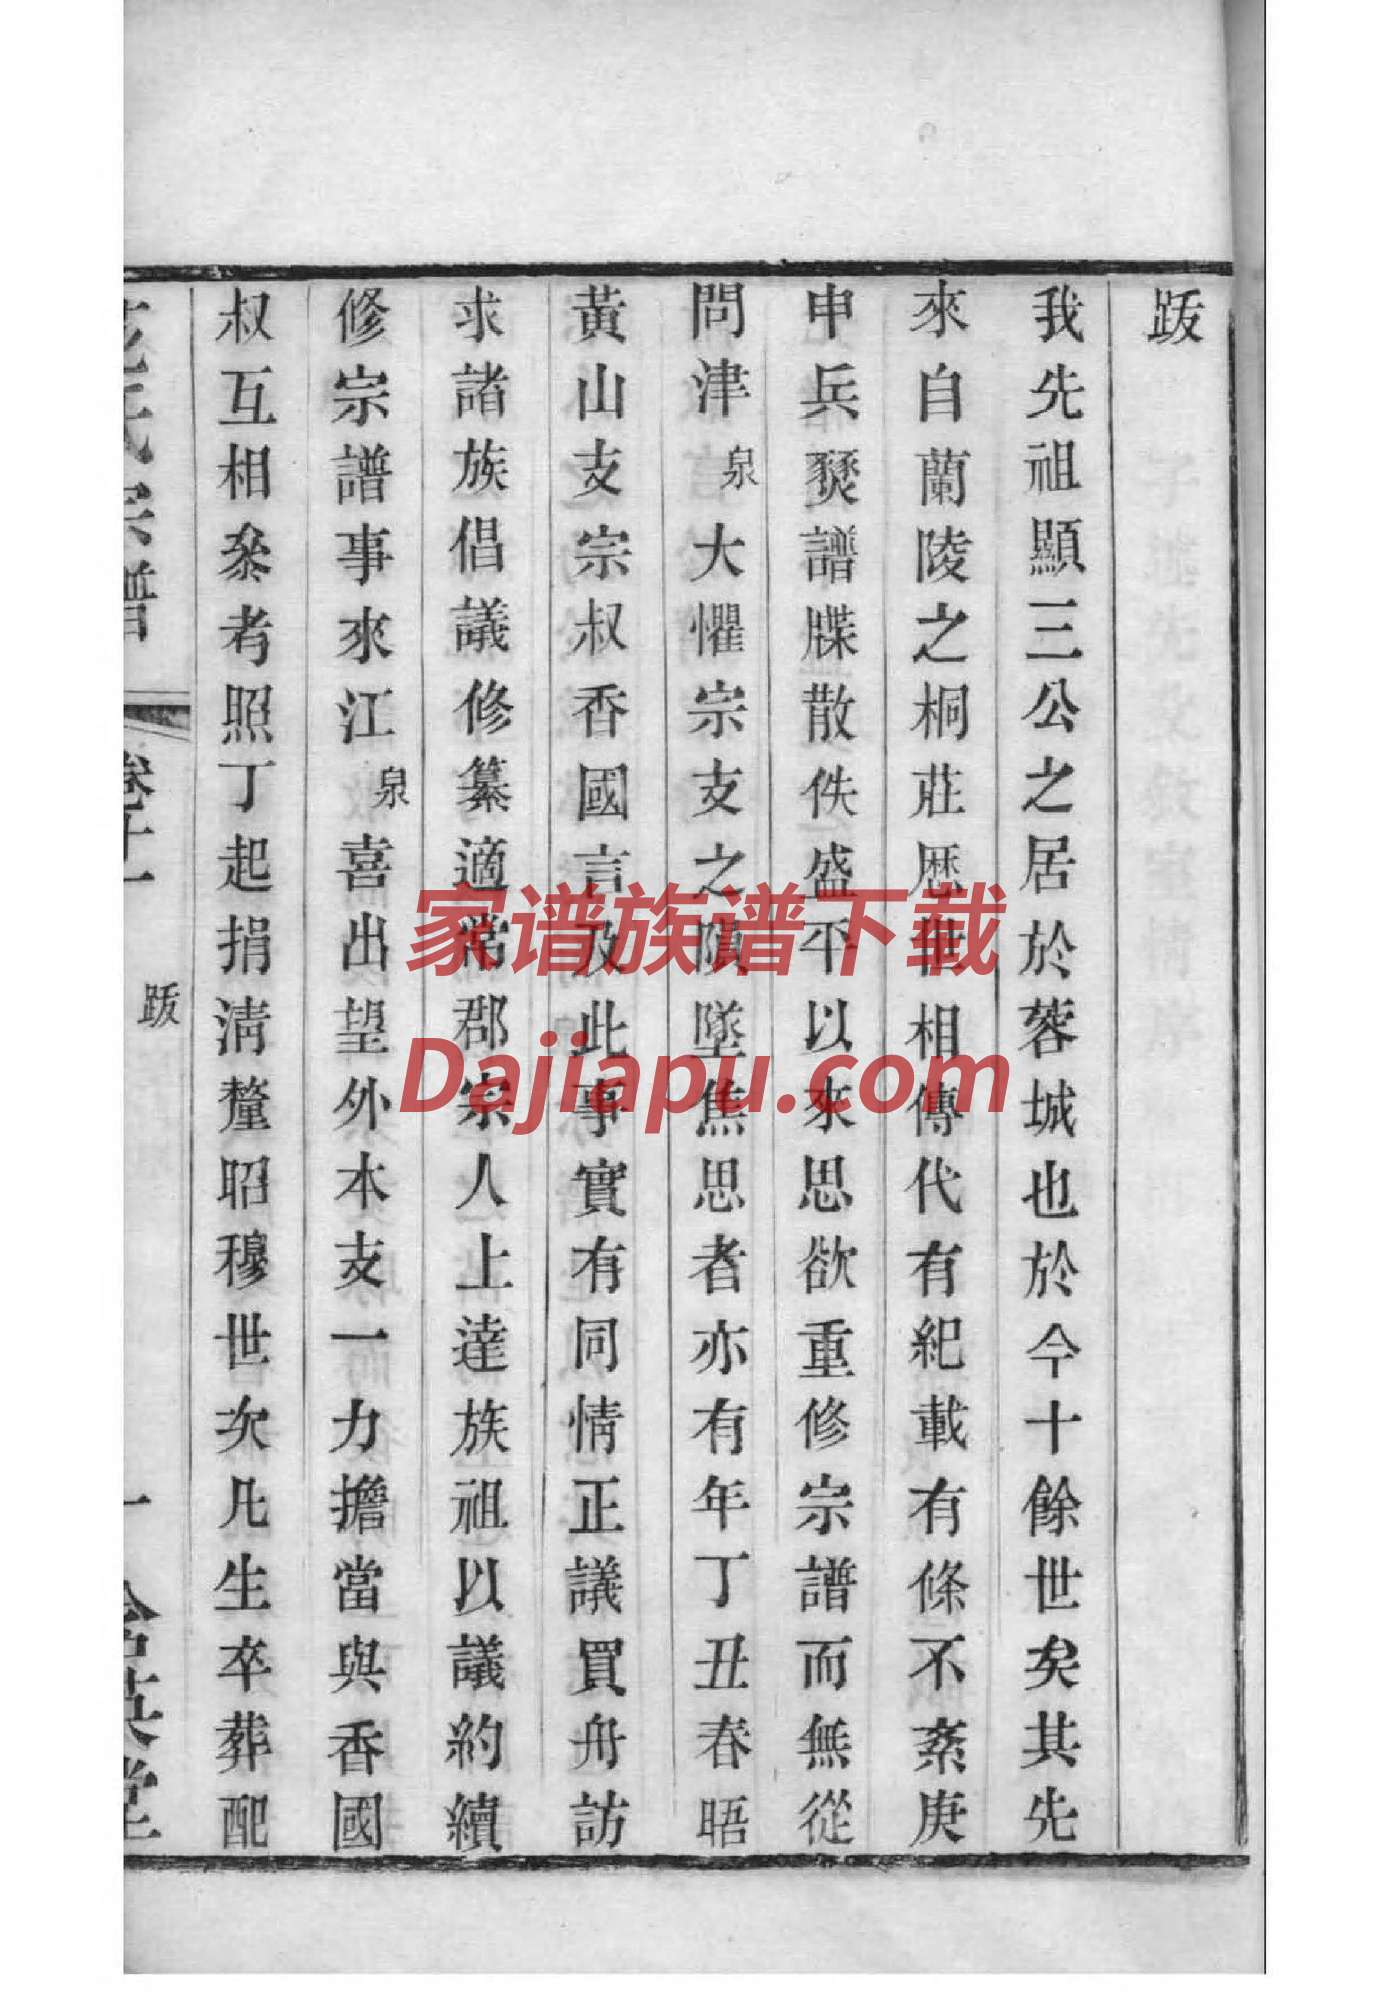 跋
我先祖顯三公之居於蓉城也於今十餘世矣其先
來自蘭陵之桐莊歷世相傳代有紀載有條不紊庚
申兵燹譜牒散佚盛平以來思欲重修宗譜而無從
問津泉大懼宗支之隕墜焦思者亦有年丁丑春晤
黃山支宗叔香國言及此事實有同情正議買舟訪
求諸族倡議修纂適常郡宗人上達族祖以議約續
修宗譜事來江泉喜出望外本支一力擔當與香國
叔互相叅考照丁起捐淸釐昭穆世次凡生卒葬配
氏宗譜
卷十一
跋
一
家谱族谱下载
Dajiapu.com